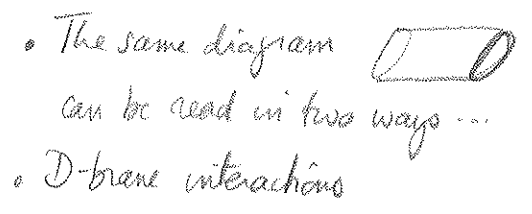 • The same diagram
can be read in two ways ...
• D-brane interactions